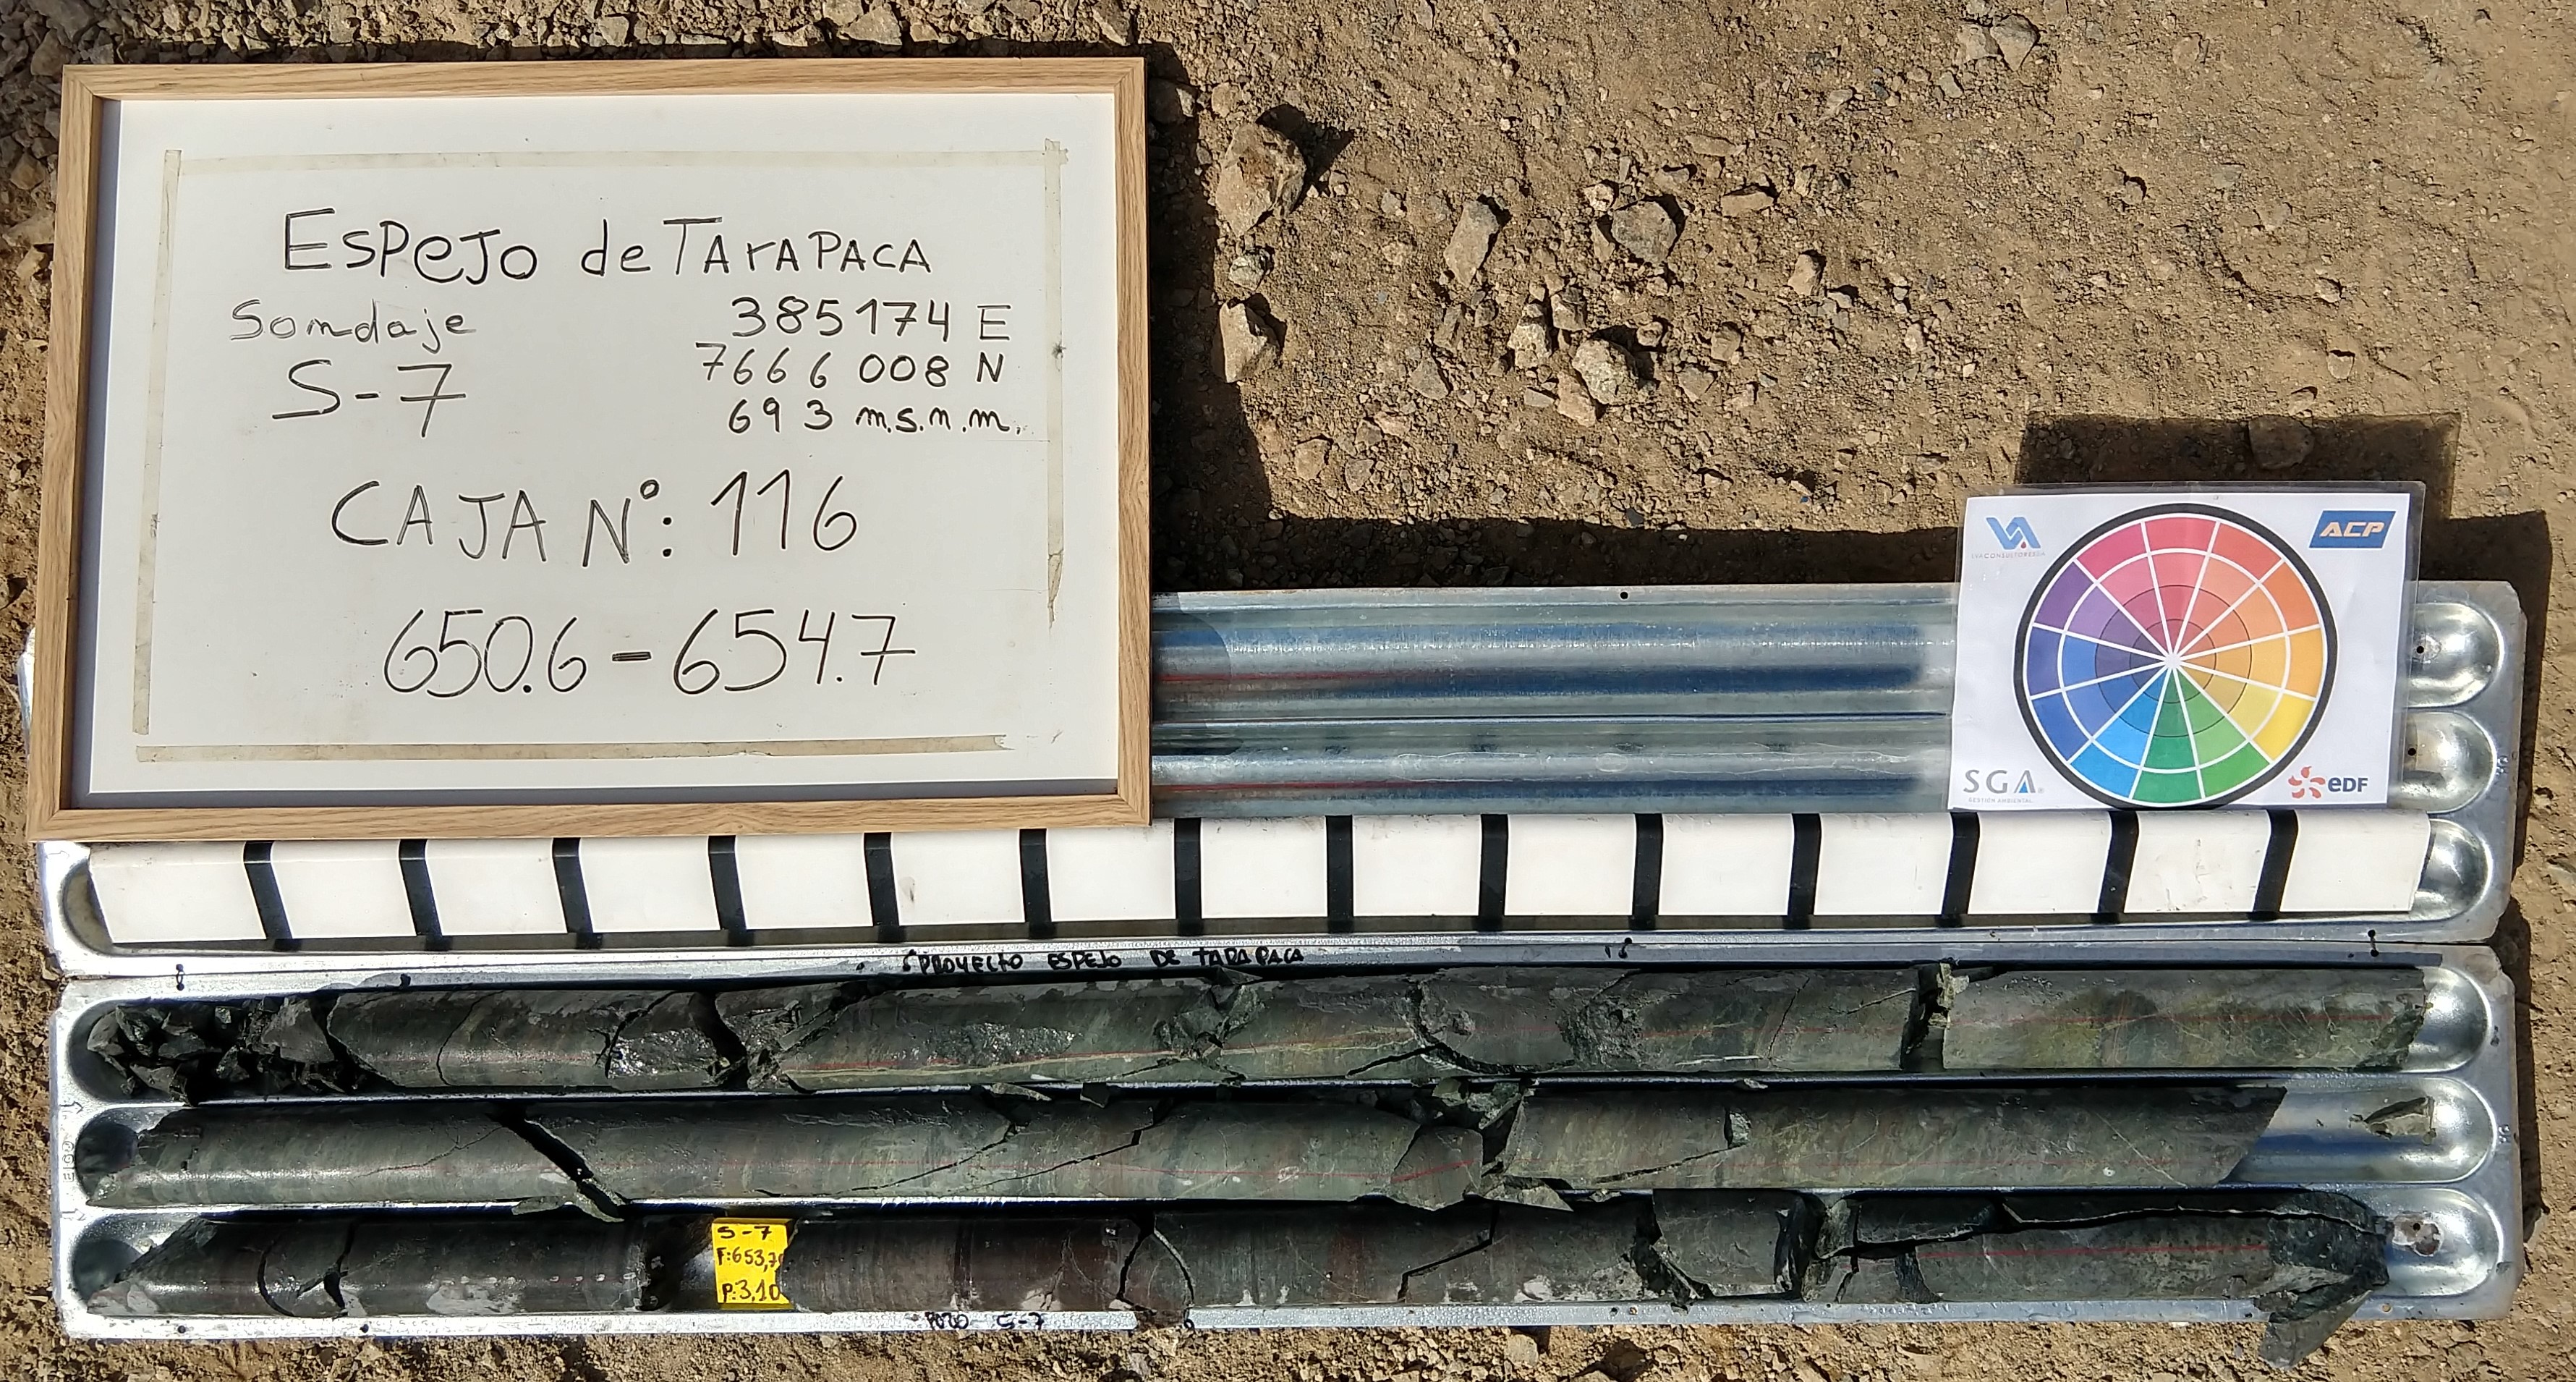 ESPEJO de TArAPACA
Sondaje
385174 E
S-7
7666008 N
693 m.s.n.m.
CAJA N°: 116
650.6-654.7
ACP
SGA
GESTIÓN AMBIENTAL
eDF
PROYECTO ESPEJO DE TARAPACA
S-7
F:653,7
P:3,10
POZO S-7